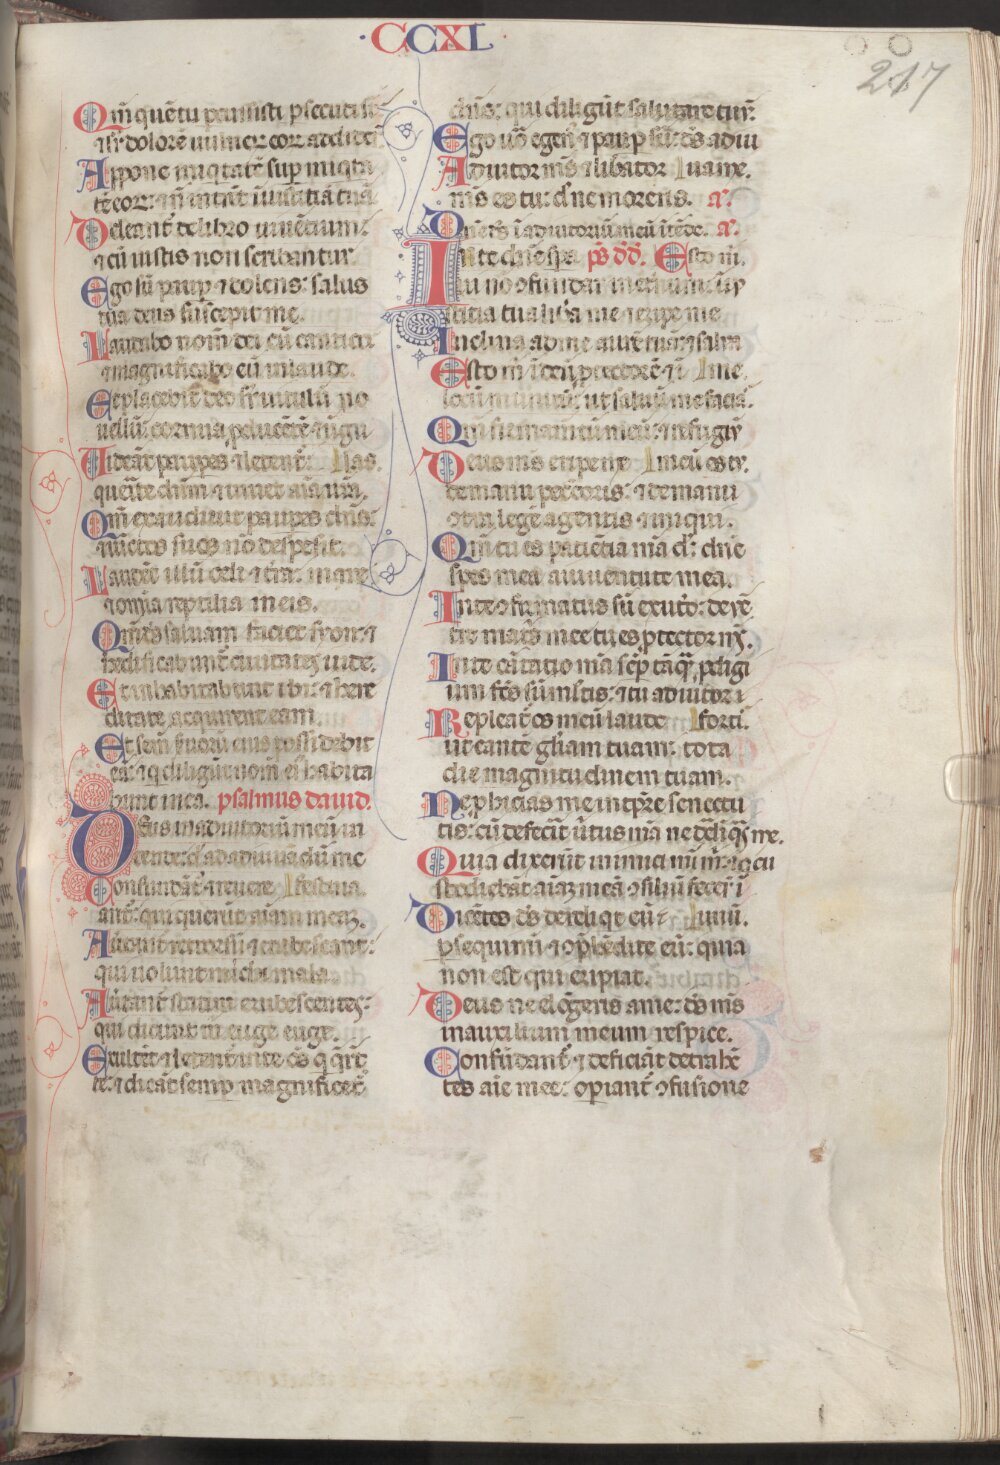 ·CCXL·
217
Qm̄ quē tu percussisti ꝑsecuti st̄
ꞇ sr̄ dolorē uulner̄ eoꝝ addider̄
Appone iniqͥtatē suꝑ iniqͥta
tē eoꝝ: ꞇ nō intrēt ī iustitiā tuā
Deleant̄ de libro uiuentium:
ꞇ cū iustis non scribantur.
Ego sū pauꝑ ꞇ dolens: salus
tua deus suscepit me.
Laudabo nom̄ dei cū cantico
ꞇ magnificabo eū in laude.
Et placebit deo sr̄ uitulū no
uellū: cornua ꝓducētē ꞇ ungu
Uideāt pauꝑes ꞇ letent̄: las.
querite dn̄m ꞇ uiuet aīa ur̄a.
Qm̄ exaudiuit pauꝑes dn̄s:
ꞇ uīctos suos nō despexit.
Laudēt illū celi ꞇ tr̄a: mare
ꞇ om̄ia reptilia in eis.
Qm̄ ds̄ saluam faciet syon: ꞇ
hedificabunt̄ ciuitates iude.
Et inhabitabunt ibi: ꞇ here
ditate acquirent eam.
Et sem̄ seruoꝝ eius possidebit
eā: ꞇ q̄ diligūt nom̄ ei' habita
bunt in ea. psalmus dauid.
Deus in adiutoriū meū in
tende: dn̄e ad adiuuādū me
Confundāt̄ ꞇ reuere festina.
ant̄: qui querūt aīam meā.
Auertāt̄ retrorsū ꞇ erubescant:
qui uolunt michi mala.
Auertant̄ statim erubescentes:
qui dicunt m̄ euge euge.
Exultēt ꞇ letent̄ in te oēs q̄ qr̄t
te: ꞇ dicāt semꝑ magnificet̄
dn̄s: qui diligūt salutare tuū:
Ego uō egen' ꞇ pauꝑ sū: ds̄ adiu
Adiutor m̄s ꞇ libator uame.
m̄s es tu: dn̄e ne moreris. a'.
Dn̄e ds̄ ī adiutoriū meū ītēde. a'.
In te dn̄e spe ps̄ dd̄. Esto m̄.
raui nō ꝯfundar in eternū: ī iu
stitia tua liba me ꞇ eripe me
Inclina ad me aurē tuā: ꞇ salua
Esto m̄ ī deū ꝓtectorē ꞇ ī me.
locū munitū: ut saluū me facias.
Qm̄ firmam̄tū meū: ꞇ refugiū
Deus m̄s eripe me meū es tu.
de manu peccatoris: ꞇ de manu
ꝯtra legē agentis ꞇ iniqui.
Qm̄ tu es patiētia m̄a dn̄e: dn̄e
spes mea a iuuentute mea.
In te ꝯfirmatus sū ex utō: de uē
tre matris mee tu es ꝓtector m̄s.
In te cātatio m̄a semꝑ tāqͣ ꝓdigi
um fc̄s sū multis: ꞇ tu adiutor
Repleat̄ os meū laude forti.
ut cantē gl̄iam tuam: tota
die magnitudinem tuam.
Ne ꝓicias me in tp̄re senectu
tis: cū defecit̄ ūtus m̄a ne deliqͣs me.
Quia dixerūt inimici mei m̄: ꞇ q̄ cu
stodiebāt aīaꝫ meā ꝯsiliū fecer̄ ī
Dicētes ds̄ dereliqͥt eū: unū.
ꝑsequimī ꞇ ꝯp̄hēdite eū: quia
non est qui eripiat.
Deus ne elōgeris a me: ds̄ m̄s
in auxilium meum respice.
Confūdant̄ ꞇ deficiāt detrahē
tes aīe mee: oꝑiant̄ ꝯfusione